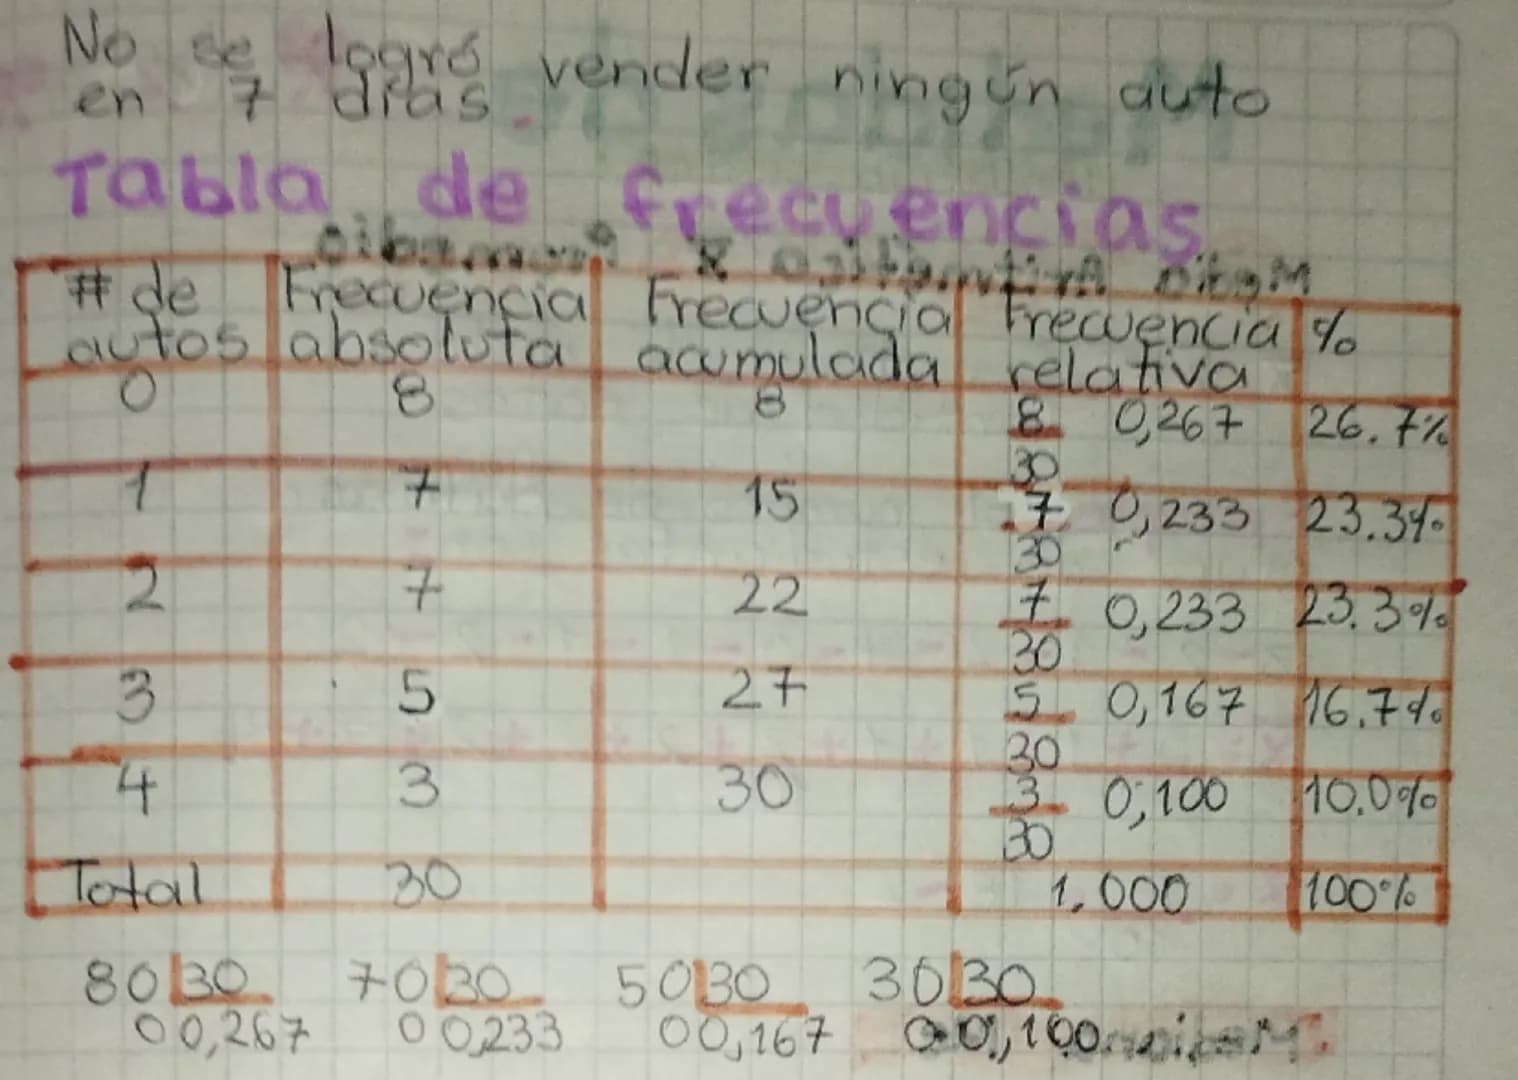 No se logró vender ningún auto
en 7 días.
Tabla de frecuencias
# de autos Frecuencia absoluta Frecuencia acumulada Frecuencia relativa %
0 8 8 8/30 0,267 26.7%
1 7 15 7/30 0,233 23.3%
2 7 22 7/30 0,233 23.3%
3 5 27 5/30 0,167 16.7%
4 3 30 3/30 0,100 10.0%
Total 30 1.000 100%
80 30 70 30 50 30 30 30
0 0,267 0 0,233 0 0,167 0 0,100